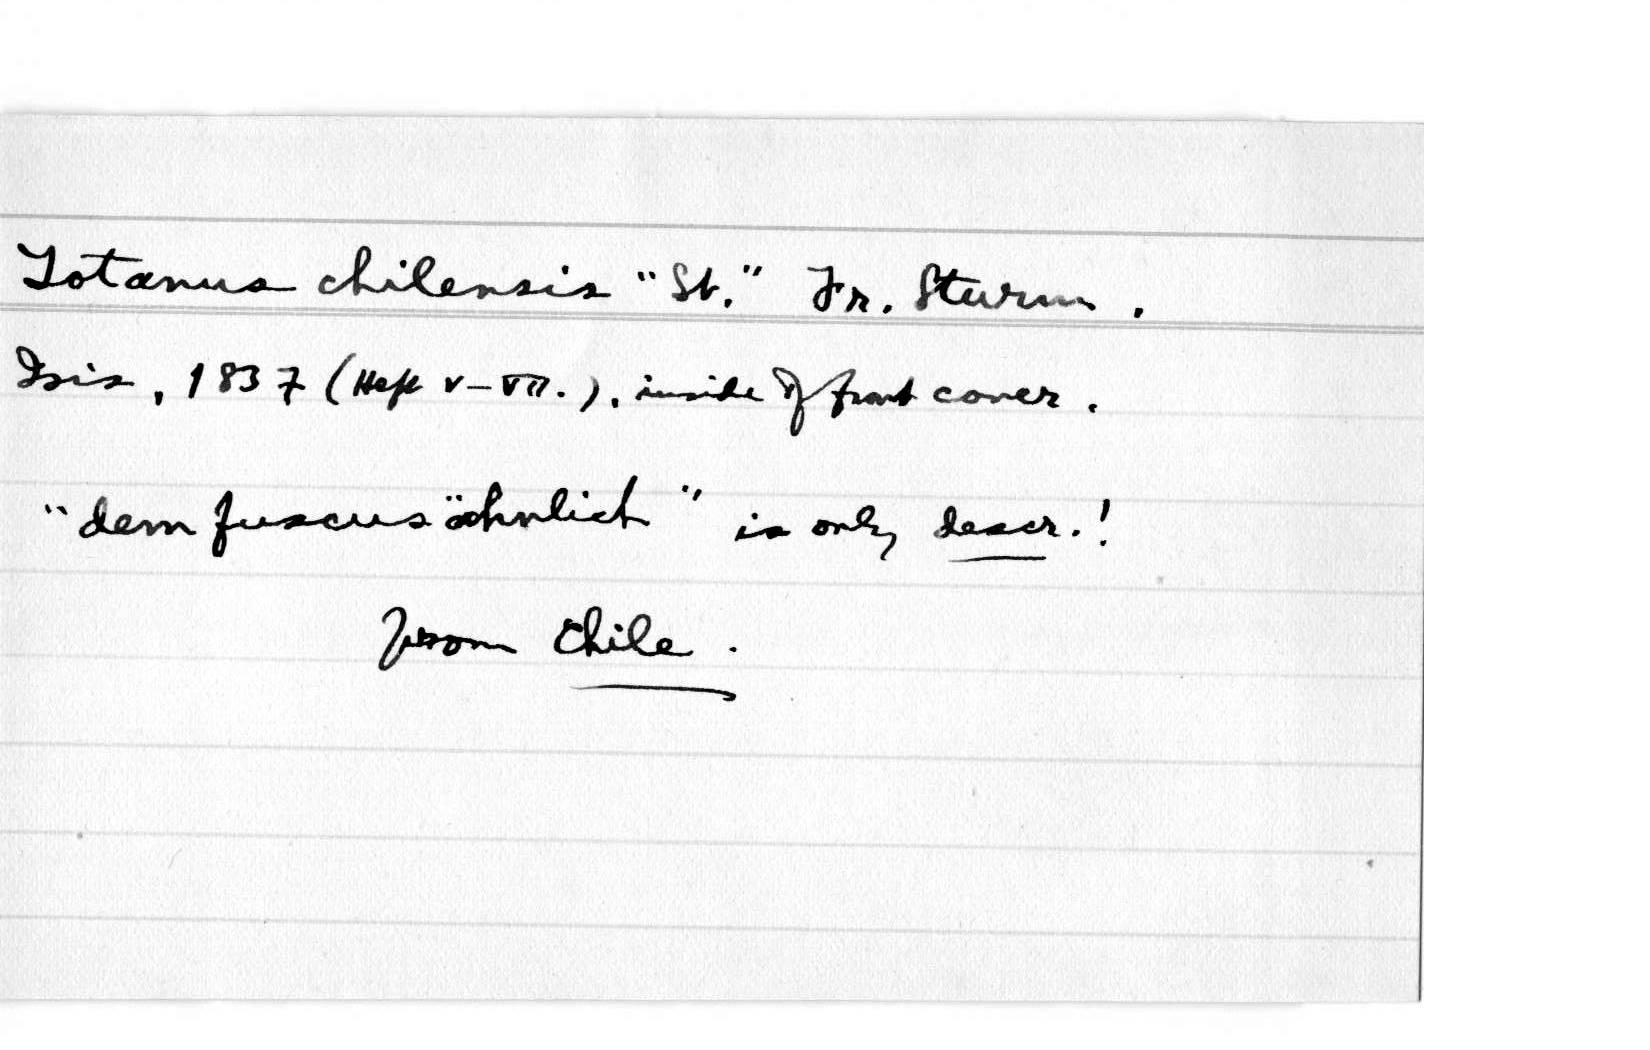 Totanus chilensis "St." Fr. Sturm.
Isis, 1837 (Heft V-VII.), inside of front cover.
"dem fuscus ähnlich" is only descr.!
From Chile.